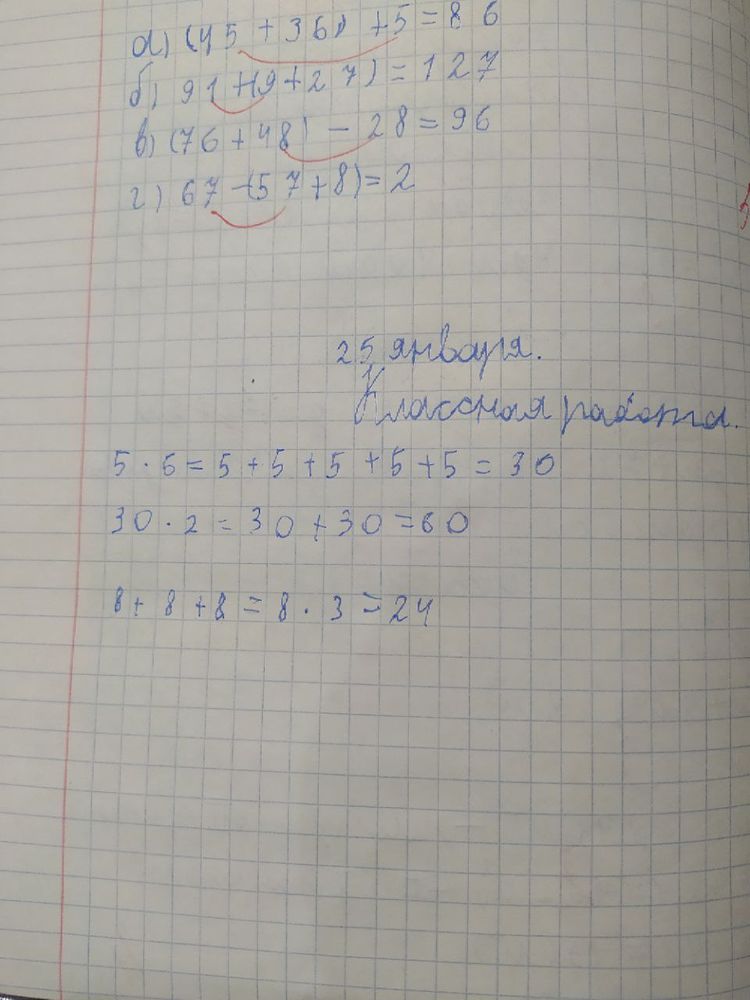 а) (45 + 36) + 5 = 86
б) 91 + (9 + 27) = 127
в) (76 + 48) - 28 = 96
г) 67 - (57 + 8) = 2
25 января.
Классная работа.
5 · 6 = 5 + 5 + 5 + 5 + 5 = 30
30 · 2 = 30 + 30 = 60
8 + 8 + 8 = 8 · 3 = 24